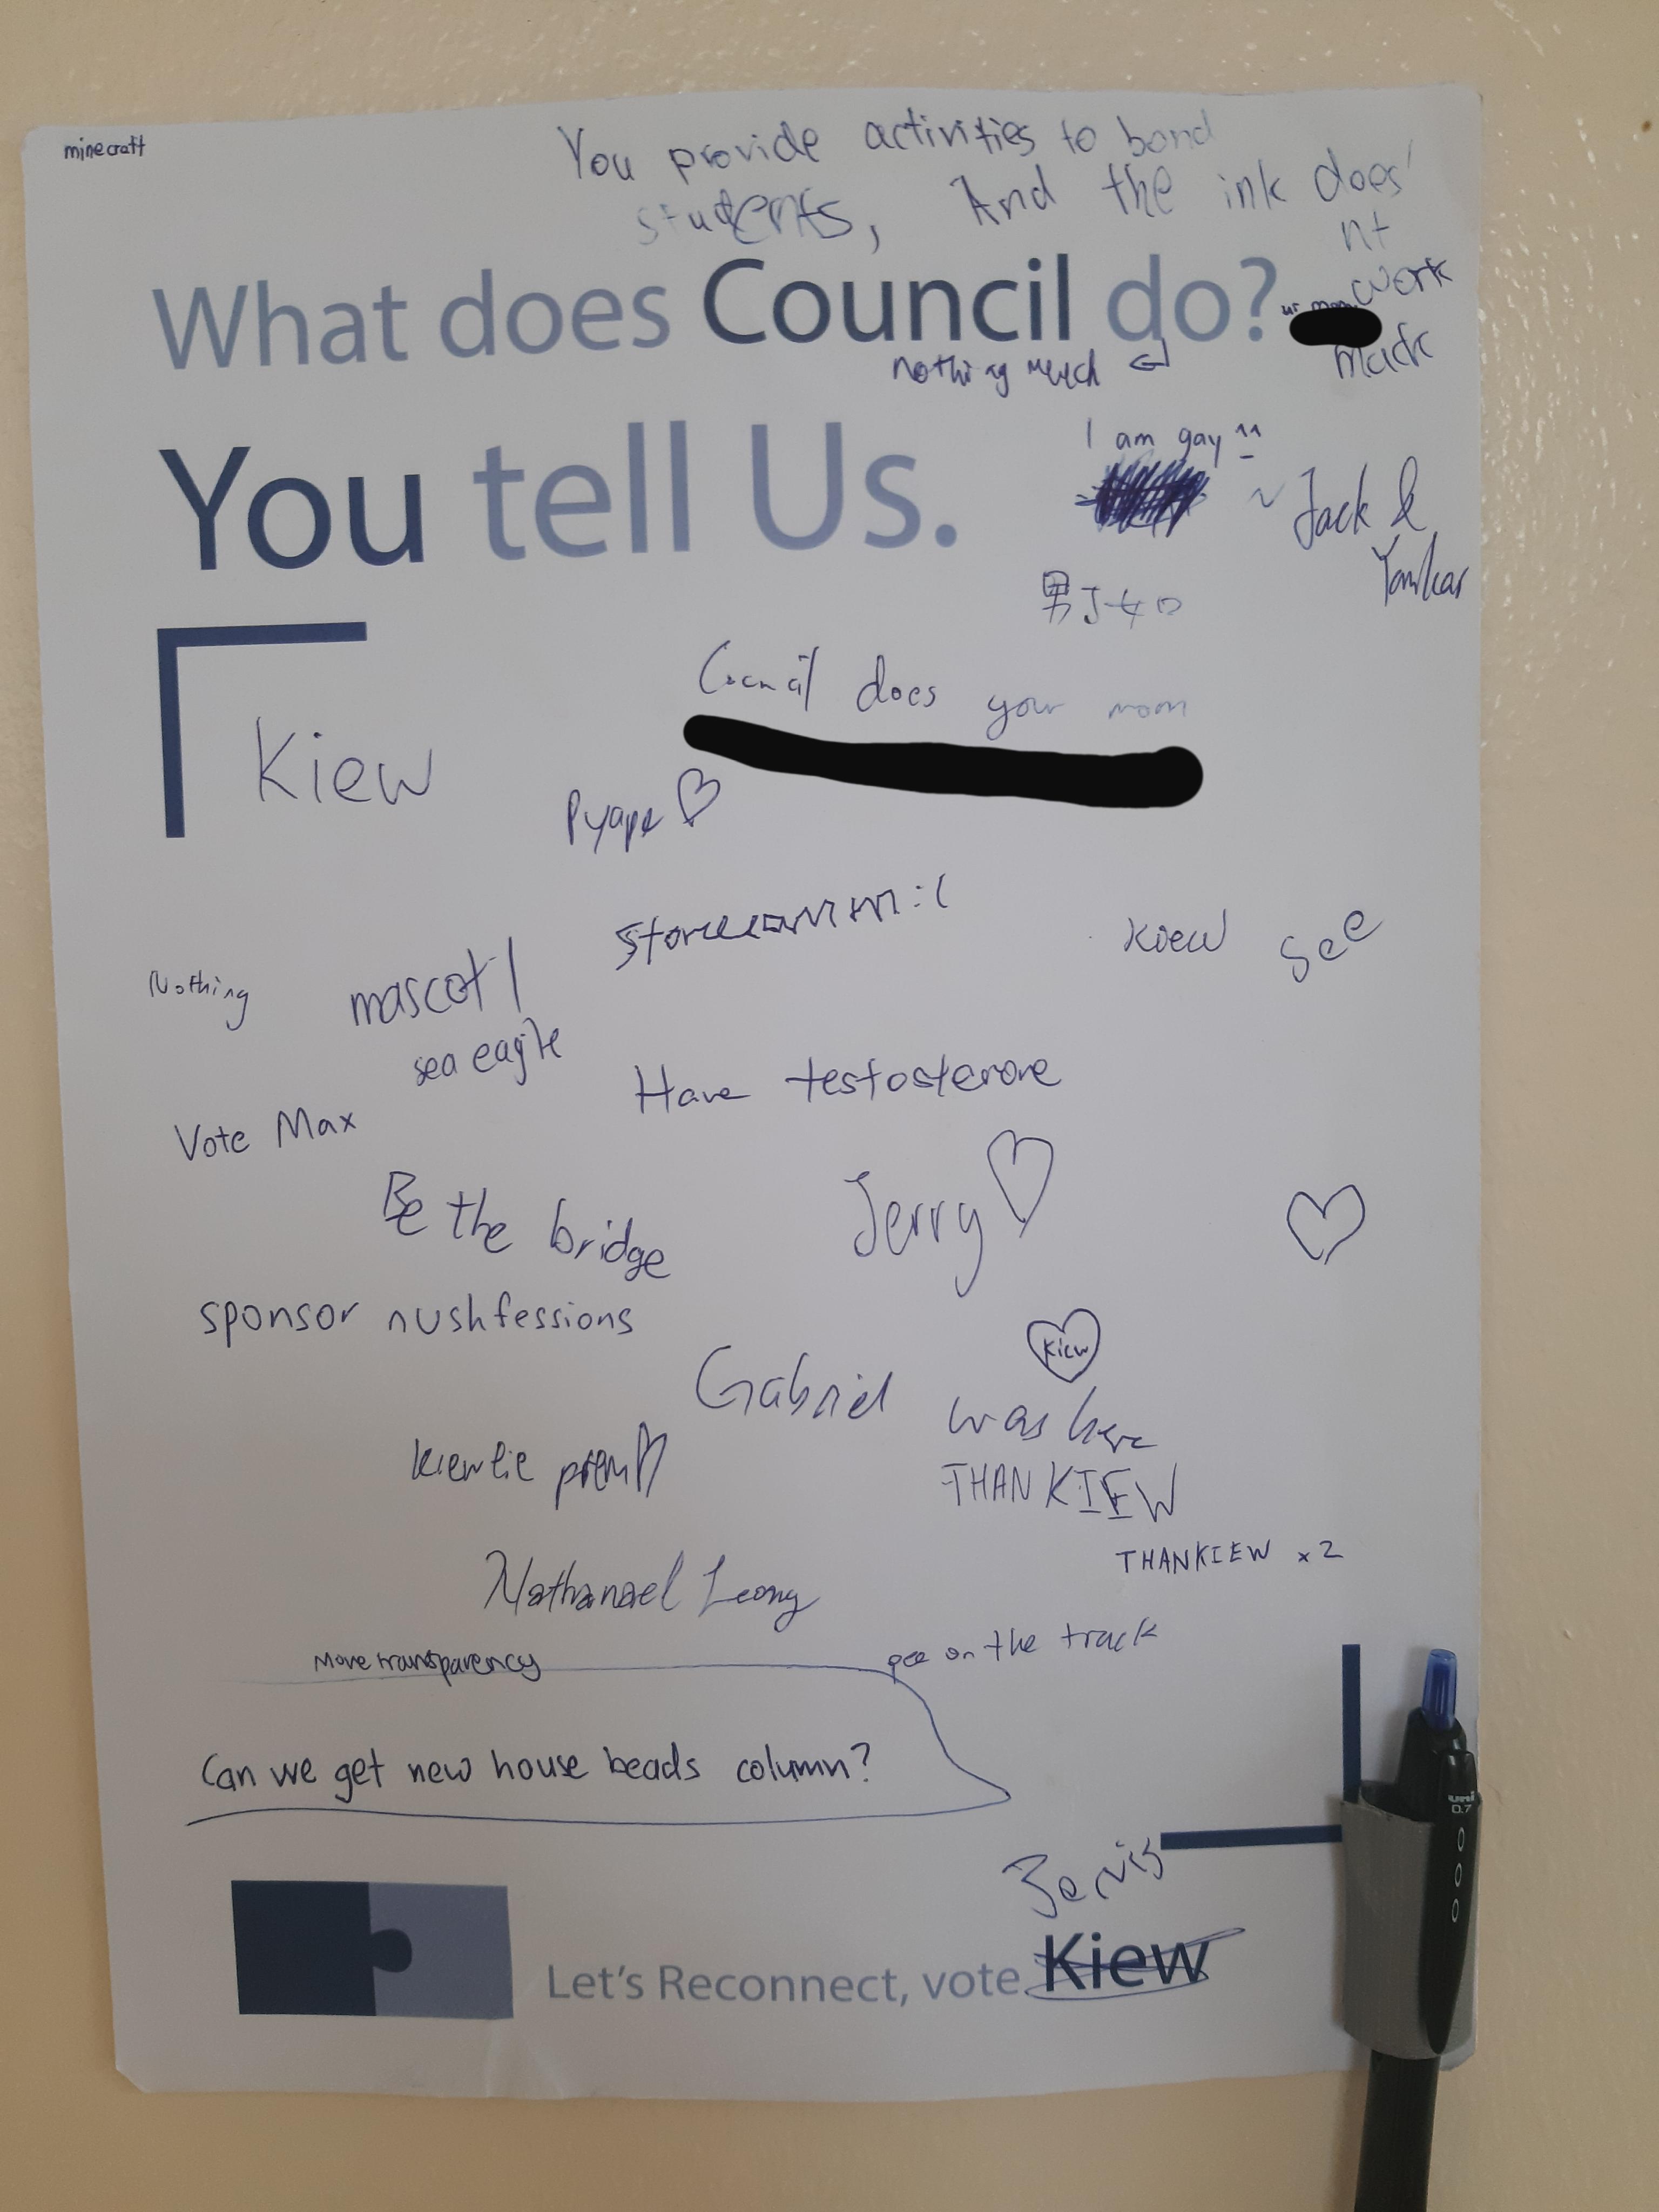 minecraft
You provide activities to bond
students, And the ink does'
nt
work
What does Council do?
ur mom
nothing much
You tell Us.
I am gay
~ Jack &
男子女口
Council does your mom
Kiew
Pyape
:(
Kiew see
Nothing
mascot!
sea eagle
Have testosterone
Vote Max
Be the bridge
Jerry
sponsor nushfessions
Kiew
Gabriel was here
Kiewlie
THANKIEW
THANKIEW x2
Nathanael Leong
More transparency
pee on the track
Can we get new house beads column?
uni
0.7
Jervis
Let's Reconnect, vote Kiew